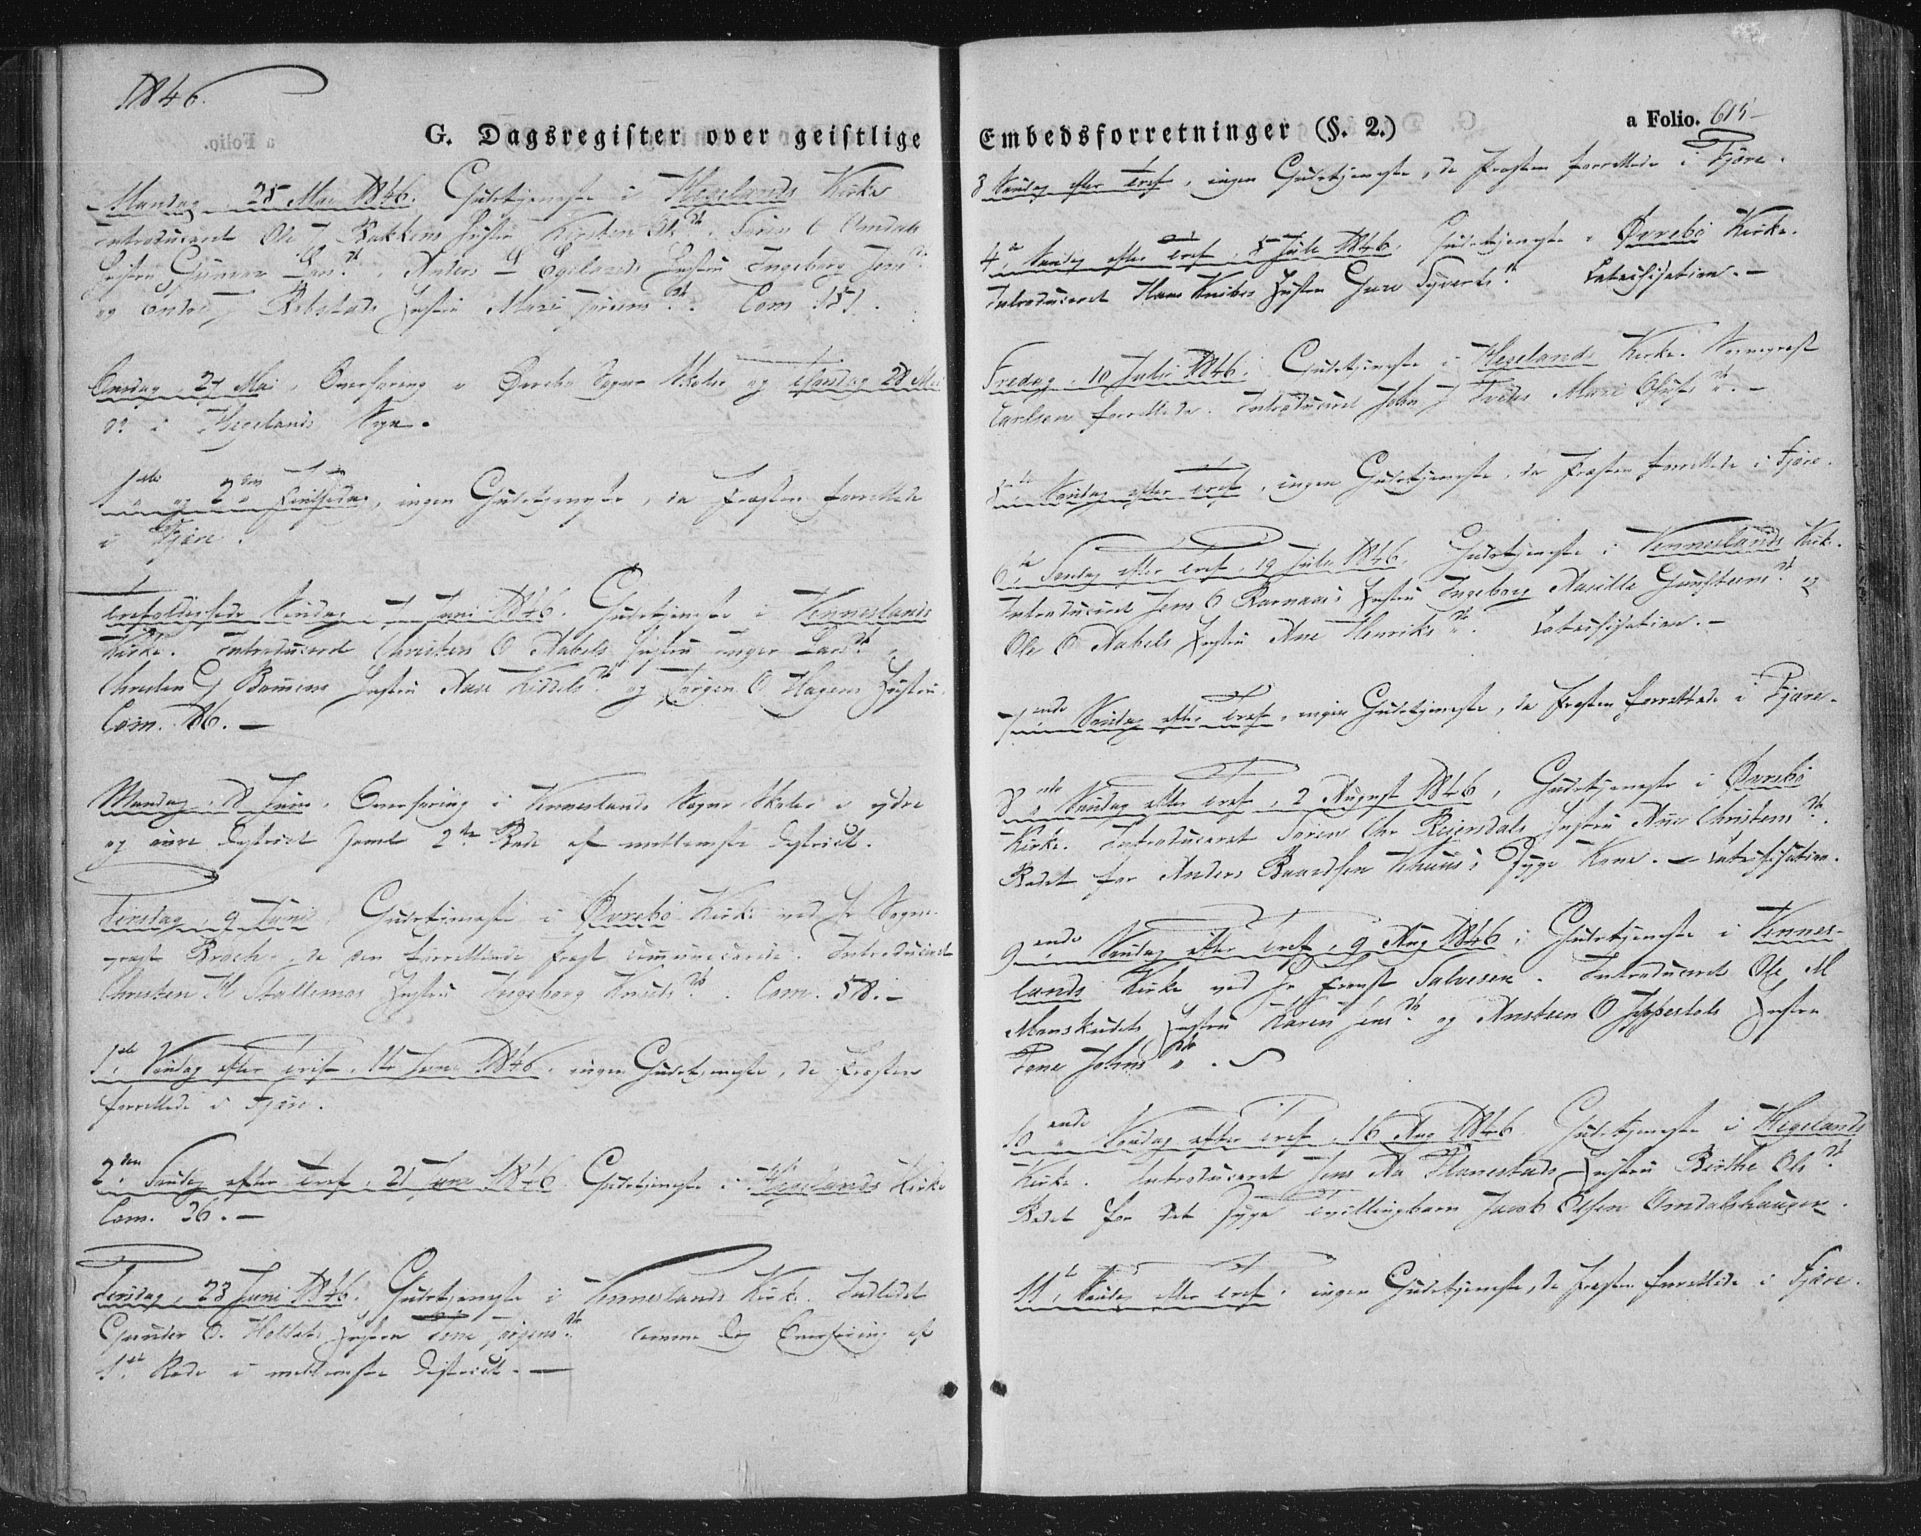 1846.
G. Dagsregister over geistlige
Mandag, 25 Mai 1846. Gudstjeneste i Hegelands Kirke
Introduceret Ole J Bakkens Hustru Kirsten Ols Dr. Sören O Omdals
Hustru Gunvor Lars Dr. Anders L Egelands Hustru Ingeborg Jens Dr.
og Hustru Mari Dr. Com. 151.
Onsdag, 27 Mai, Overhöring i Øvrebø Sogns Skoler og Torsdag 28 Mai
do i Hegelands Sogn.
1ste og 2den Pintsedag, ingen Gudstjeneste, da Præsten forrettede
i Fjære.
Trefoldigheds Söndag 7 Juni 1846. Gudstjeneste i Venneslands
Kirke. Introduceret Christen O Aabels Hustru Inger Lars Dr.
Hustru Ane Kittels Dr. og Jörgen O Hagens Hustru.
Com. 86. —
Mandag, 8 Juni, Overhöring i Vennesland Sogns Skoler i ydre
og övre District samt 2den Rode af mellemste District.
Tirsdag, 9 Juni Gudstjeneste i Øvrebö Kirke ved Hr Sogne-
præst Broch, da den forrettende Præst communicerede. Introduceret
Christen H Stallemos Hustru Ingeborg Knuds Dr. Com. 58. —
1ste Söndag efter Tref. 14 Juni 1846, ingen Gudstjeneste, da Præsten
forrettede i Fjære.
2den Söndag efter Tref. 21 Juni 1846 Gudstjeneste i Hegelands Kirke
Com. 36. —
Tirsdag, 23 Juni 1846. Gudstjeneste i Vennesland Kirke. Indledet
Gunder O. Hustru Tone Jörgens Dr. samme Dag Overhöring af
1ste Rode i mellemste District. —
Embedsforretninger (§. 2.)
a Folio. 615
3 Söndag efter Tref., ingen Gudstjeneste, da Præsten forrettede i Fjære.
4de Söndag efter Tref., 5 Juli 1846. Gudstjeneste i Øvrebö Kirke.
Introduceret Hans Hustru Gure Syverts Dr. Catechisation. —
Fredag, 10 Julii 1846. Gudstjeneste i Hegelands Kirke.
Carlsen forrettede. Introduceret John J Tveits Mari Dr. —
5te Söndag efter Tref., ingen Gudstjeneste, da Præsten forrettede i Fjære.
6te Söndag efter Tref., 19 Julii 1846. Gudstjeneste i Vennesland Kirke.
Introduceret Jens O Hustru Ingeborg Dr. og
Ole O Aabels Hustru Ane Henriks Dr. Catechisation. —
7ende Söndag efter Tref., ingen Gudstjeneste, da Præsten forrettede i Fjære.
8de Söndag efter Tref., 2 August 1846, Gudstjeneste i Øvrebö
Kirke. Introduceret Sören Chr Reiersdals Hustru Ane Christens Dr.
Bedet for Anders Baardsen syge Kone. — Catechisation.
9ende Söndag efter Tref., 9 Aug 1846; Gudstjeneste i Vennes-
lands Kirke ved Hr Provst Salvesen. Introduceret Ole M
Moseidets Hustru Karen Jens Dr. og Ansteen O Jeppestøls Hustru
Tone Johns Dr.
10ende Söndag efter Tref. 16 Aug 1846 Gudstjeneste i Hegelands
Kirke. Introduceret Jens Aa Hustru Birthe Ols Dr.
Bedet for det syge Tvillingbarn Jacob Olsen Omdalshaugen.
11te Söndag efter Tref., ingen Gudstjeneste, da Præsten forrettede i Fjære.